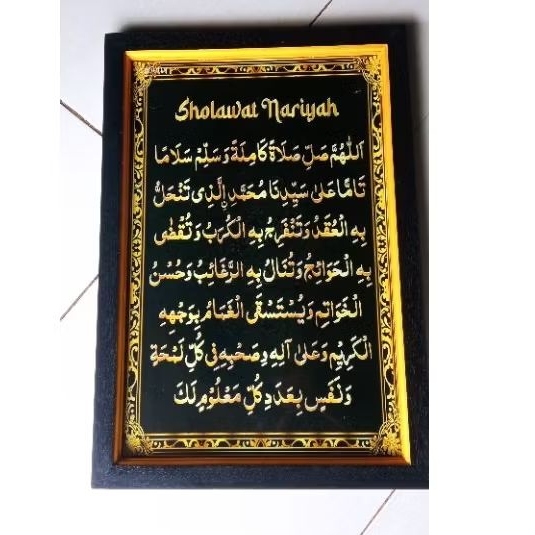 Sholawat Nariyah
اَللّٰهُمَّ صَلِّ صَلَاةً كَامِلَةً وَسَلِّمْ سَلَامًا
تَامًّا عَلىٰ سَيِّدِنَا مُحَمَّدِ الَّذِى تَنْحَلُّ
بِهِ الْعُقَدُ وَتَنْفَرِجُ بِهِ الْكُرَبُ وَتُقْضٰى
بِهِ الْحَوَائِجُ وَتُنَالُ بِهِ الرَّغَائِبُ وَحُسْنُ
الْخَوَاتِمِ وَيُسْتَسْقَى الْغَمَامُ بِوَجْهِهِ
الْكَرِيْمِ وَعَلىٰ آلِهِ وَصَحْبِهِ فِى كُلِّ لَمْحَةٍ
وَنَفَسٍ بِعَدَدِ كُلِّ مَعْلُوْمٍ لَكَ